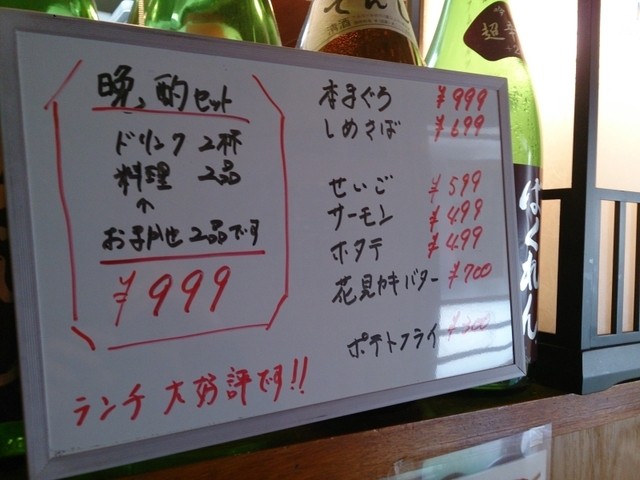 晩酌セット
ドリンク 2杯
料理 2品
↑
お子かせ2品です
¥999
ランチ 大好評です!!
本まぐろ ¥999
しめさば ¥699
せいご ¥599
サーモン ¥499
ホタテ ¥499
花見カキバター ¥700
ポテトフライ ¥300
清酒
超辛
はくれん